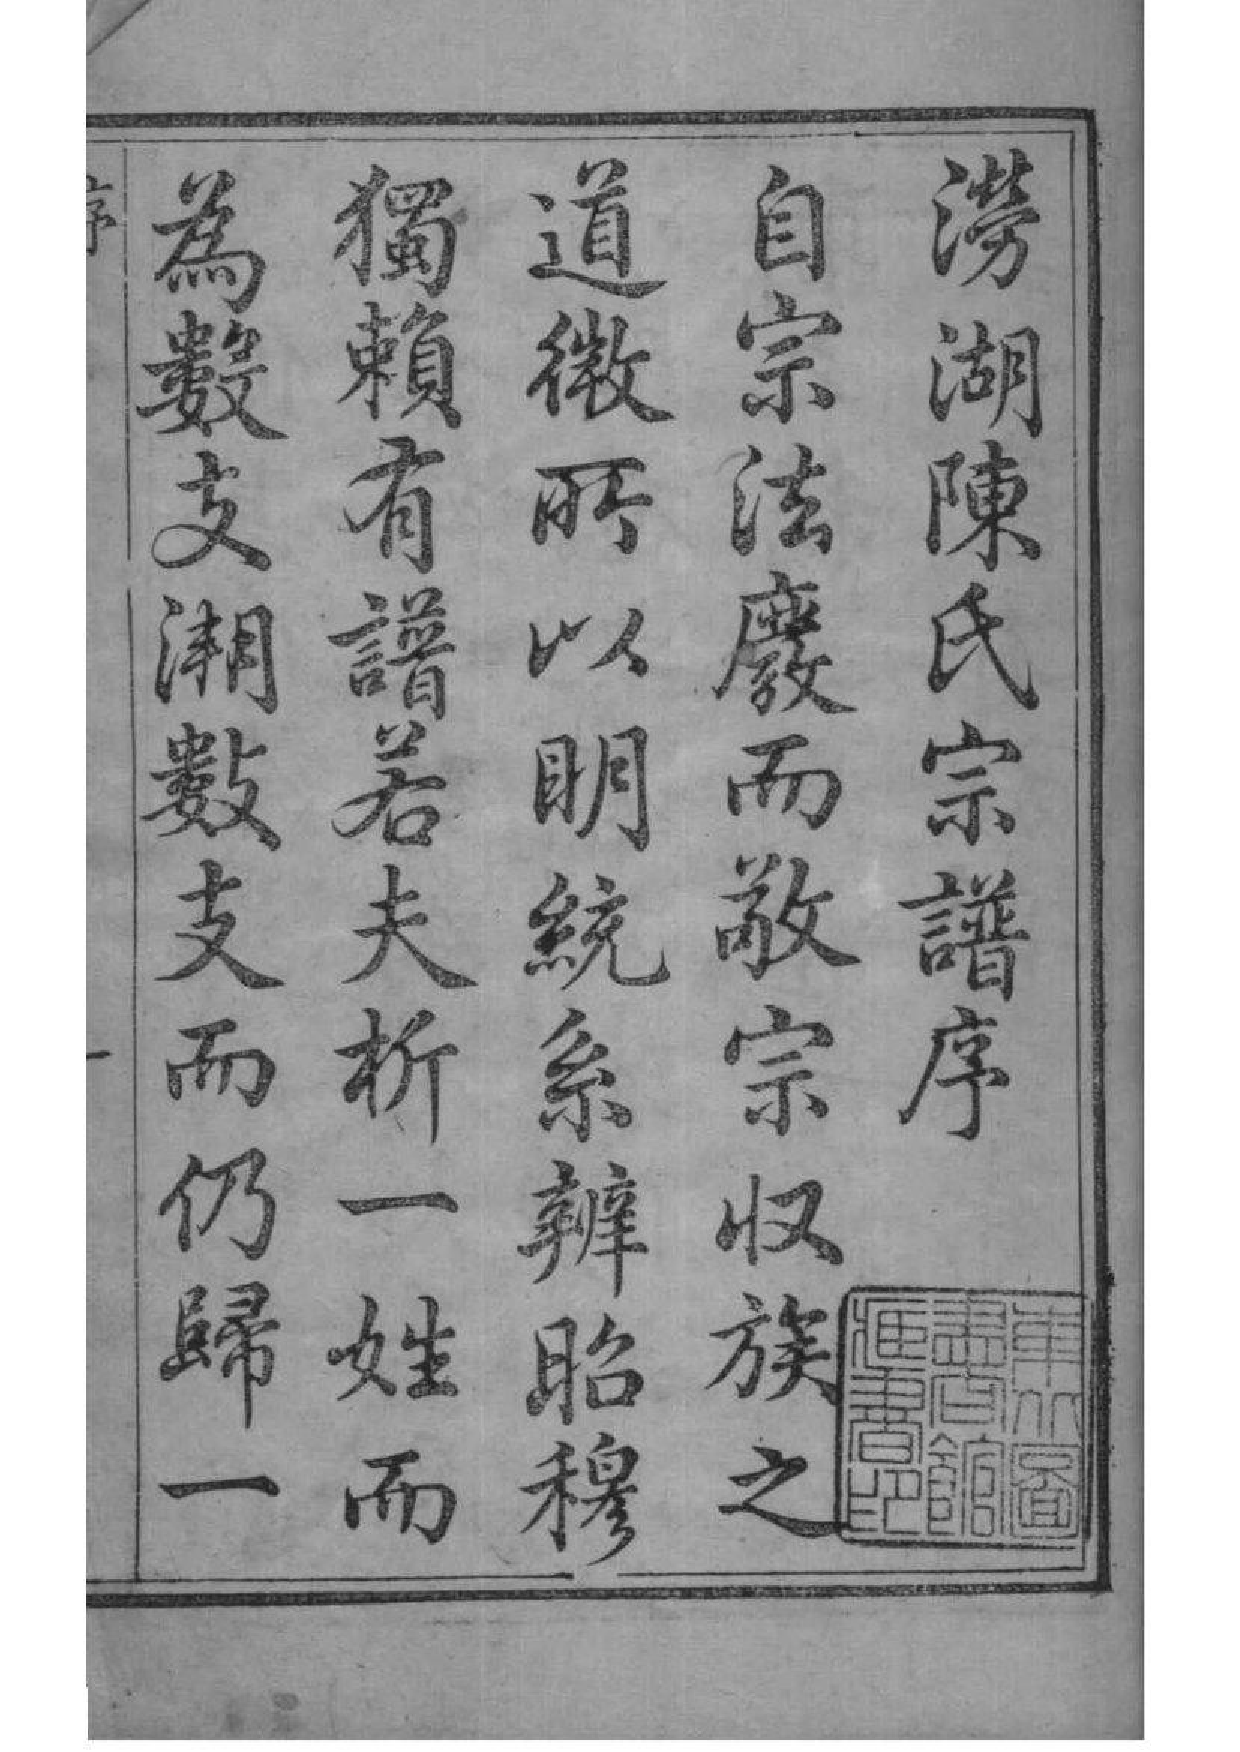 澇湖陳氏宗譜序
自宗法廢而敬宗収族之
道微所以明統系辨昭穆
獨賴有譜若夫析一姓而
為數支溯數支而仍歸一
序
一